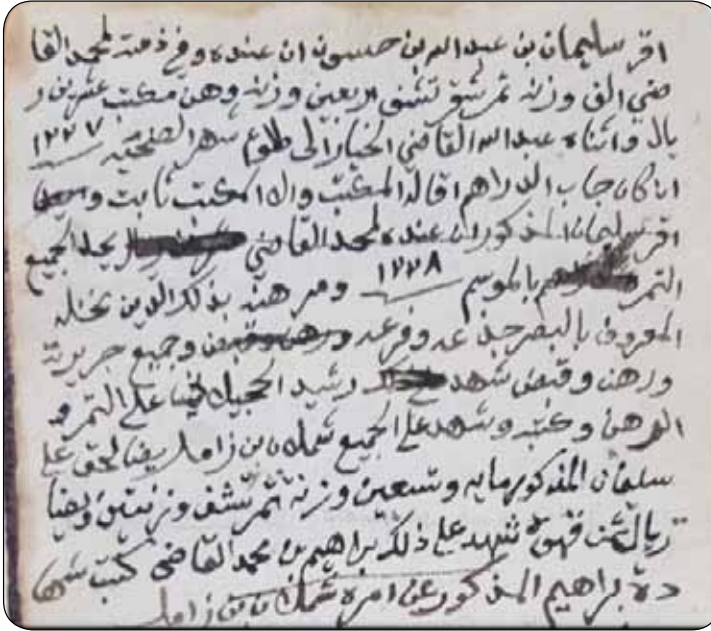 اقر سليمان بن عبدالله بن حسون ان عنده وفي ذمته لمحمد القا
ضي الف وزنه تمر شقر تشنق اربعين وزنه وهن مكتب عشرين ر
يال واثناه عبدالله القاضي الخيار الى طلوع شهر الضحيه ١٢٢٧
اذا كان جاب الدراهم اقاله المكتب والا المكتب ثابت
اقر سليمان المذكور ان عنده لمحمد القاضي الجميع
التمر بالموسم ١٢٢٨ ومرهنه بذلك الدين نخله
المعروف بالبصر جذعه وفرعه وجميع جريرته
ورهن وقبض شهد رشيد الحجيلاني على التمر و
الرهن وكتبه وشهد على الجميع شملان بن زامل يضا لحق على
سليمان المذكور مايه وسبعين وزنه تمر تشنق وزنتين ويضا
ريال ثمن قهوة شهد على ذلك براهيم بن محمد القاضي كتبت شها
دة براهيم المذكور عن امره شملان بن زامل